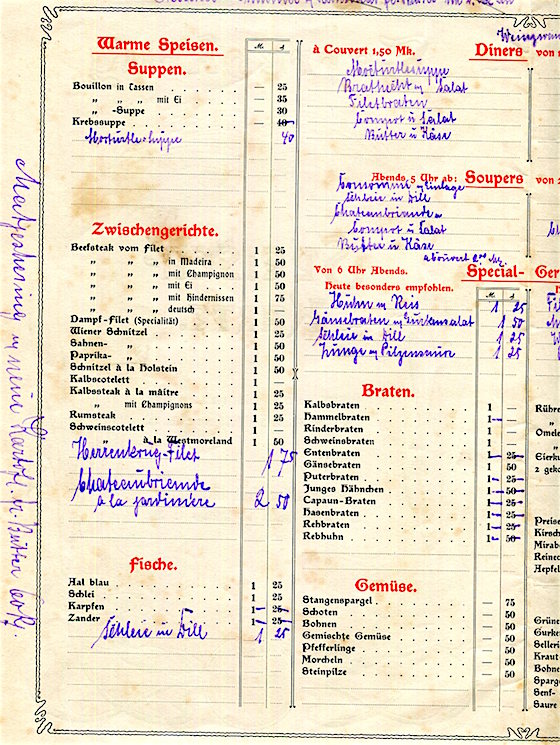 Warme Speisen.
M. ₰
Suppen.
Bouillon in Tassen — 25
„ „ „ mit Ei — 35
„ -Suppe — 30
Krebssuppe — 40
Mocturtle-Suppe 40
Zwischengerichte.
Beefsteak vom Filet 1 25
„ „ „ in Madeira 1 50
„ „ „ mit Champignon 1 50
„ „ „ mit Ei 1 50
„ „ „ mit Hindernissen 1 75
„ „ deutsch 1 —
Dampf-Filet (Specialität) 1 50
Wiener Schnitzel 1 25
Sahnen- „ 1 50
Paprika- „ 1 50
Schnitzel à la Holstein 1 50
Kalbscotelett 1 —
Kalbssteak à la maître 1 25
„ mit Champignons 1 25
Rumsteak 1 25
Schweinscotelett 1 —
„ à la Westmoreland 1 50
Herrenkrug-Filet 1 75
Chateaubriande
à la jardiniere 2 50
Fische.
Aal blau 1 25
Schlei 1 25
Karpfen 1 25
Zander 1 25
Schleie in Dill 1 25
à Couvert 1,50 Mk. Diners von 1
Mocturtlesuppe
Brathecht m Salat
Filetbraten
Compot u Salat
Butter u Käse
Abends 5 Uhr ab: Soupers von
Consommé m Einlage
Schleie in Dill
Chateaubriande
Compot u Salat
Butter u Käse
a Couvert 2 00 M.
Von 6 Uhr Abends. Special- Ger
Heute besonders empfohlen. M. ₰
Huhn m Reis 1 25
Gänsebraten m Gurkensalat 1 50
Schleie in Dill 1 25
Zunge m Pilzensauce 1 25
Braten.
Kalbsbraten 1 —
Hammelbraten 1 —
Rinderbraten 1 —
Schweinsbraten 1 —
Entenbraten 1 25
Gänsebraten 1 50
Puterbraten 1 25
Junges Hähnchen 1 50
Capaun-Braten 1 25
Hasenbraten 1 25
Rehbraten 1 25
Rebhuhn 1 50
Gemüse.
Stangenspargel — 75
Schoten — 50
Bohnen — 50
Gemischte Gemüse — 50
Pfefferlinge — 50
Morcheln — 50
Steinpilze — 50
Rühre
„
Omele
„
Eierku
2 geko
Preise
Kirsch
Mirab
Reinec
Aepfel
Grüne
Gurke
Selleri
Kraut
Bohne
Sparge
Senf-
Saure
Matjeshering m neue Kartoff. u. Butter